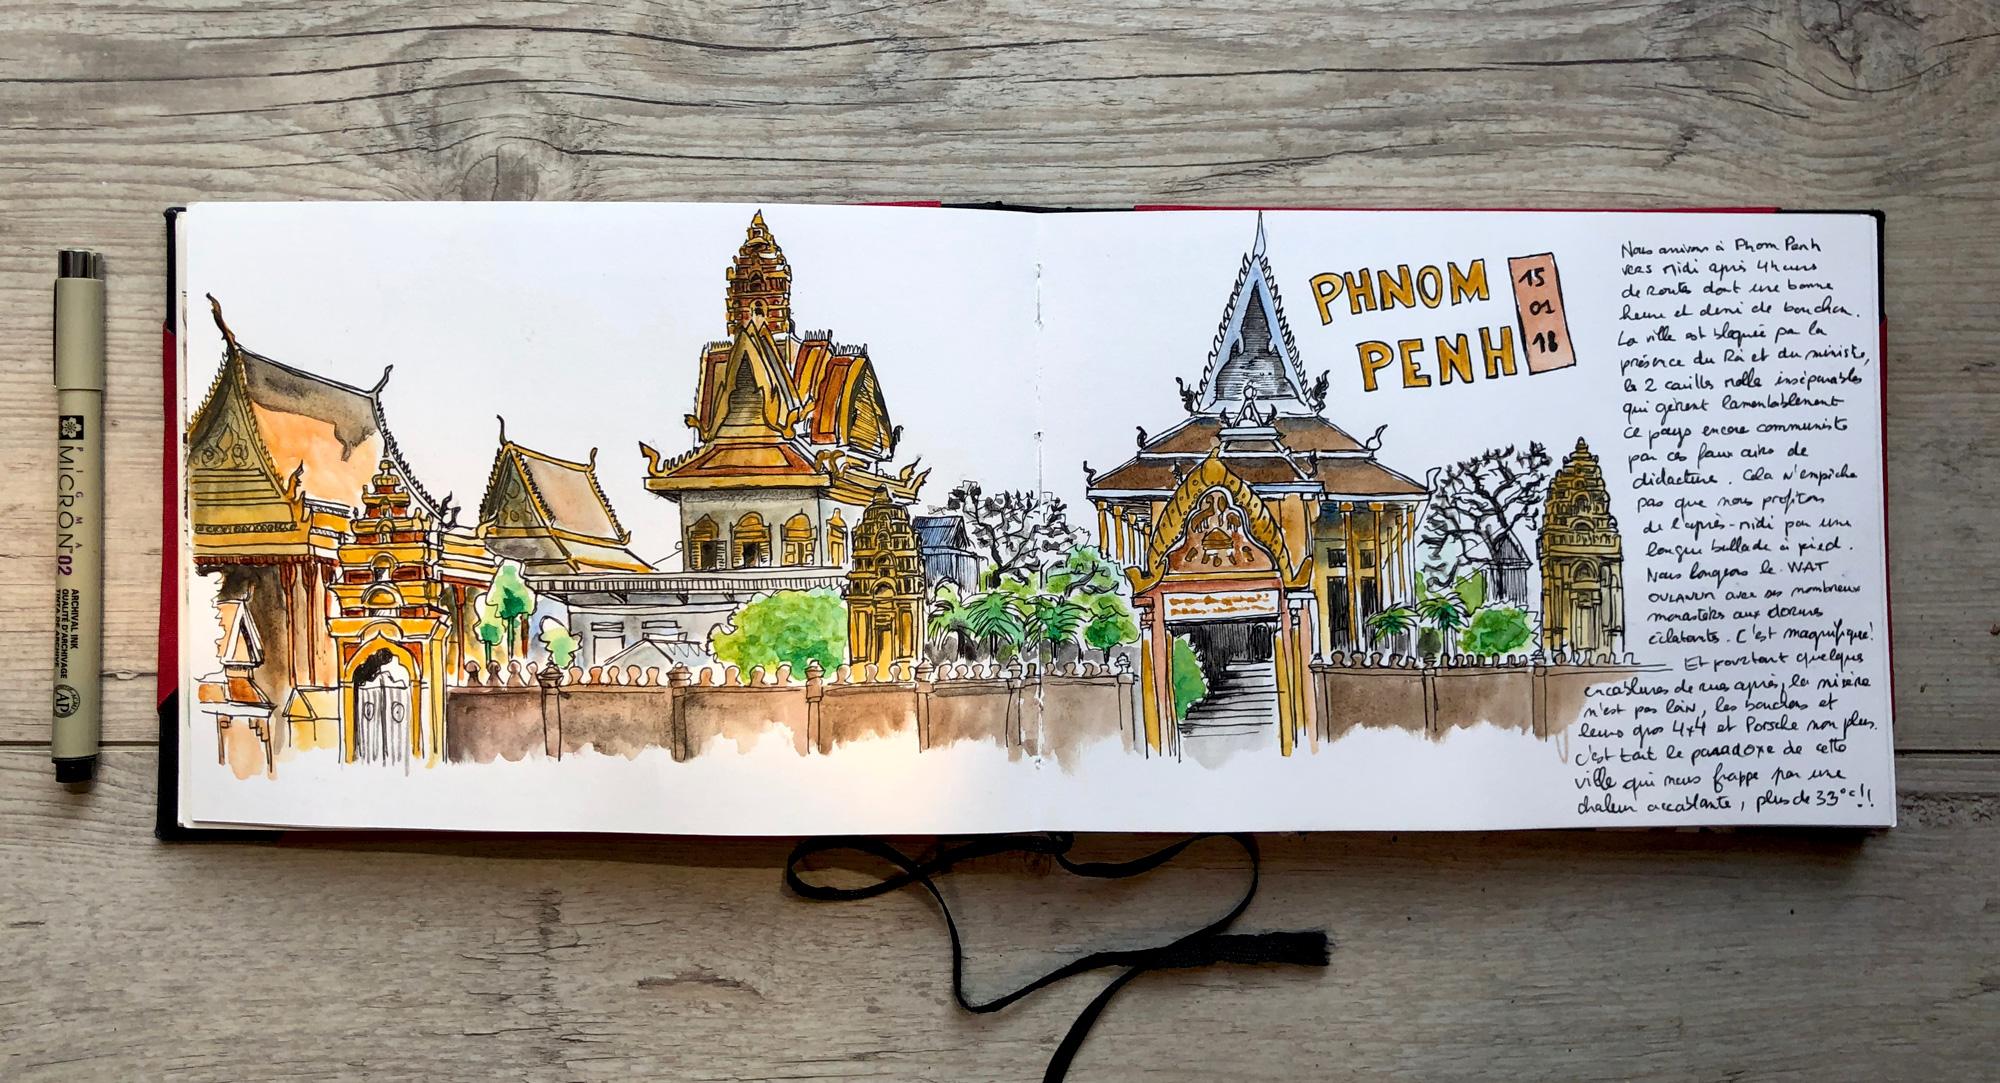 PIGMA
MICRON
02
ARCHIVAL INK
QUALITÉ D'ARCHIVAGE
TINTA DE ARCHIVE
AP
PHNOM
PENH
15
01
18
Nous arrivons à Phom Penh
vers midi après 4 heures
de routes dont une bonne
heure et demi de bouchon.
La ville est bloquée par la
présence du Roi et du ministre,
les 2 couilles molle inséparables
qui gèrent lamentablement
ce pays encore communiste
par ces faux airs de
didacture. Cela n'empêche
pas que nous profitons
de l'après-midi par une
longue ballade à pied.
Nous longeons le WAT
OULANUM avec ses nombreux
monastères aux dorures
éclatantes. C'est magnifique!
Et pourtant quelques
encablures de rues après, la misère
n'est pas loin, les bouchons et
leurs gros 4x4 et Porsche non plus.
c'est tout le paradoxe de cette
ville qui nous frappe par une
chaleur accablante, plus de 33°c!!